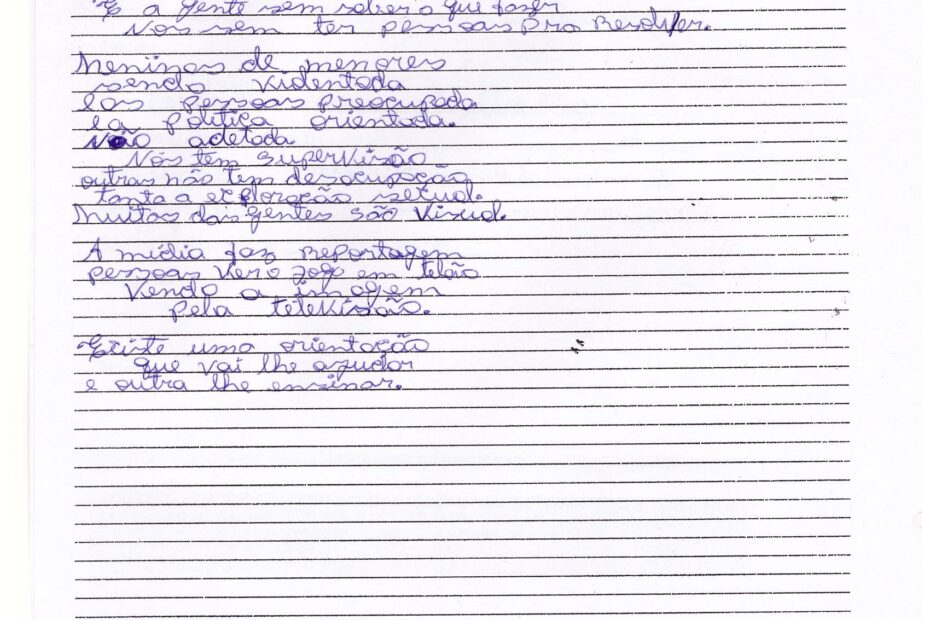 E a gente sem saber o que fazer
Nos sem ter pessoas pro Resolver.
Meninas de menores
sendo violentada
e as pessoas preocupada
e a politica orientada.
Não adetada
Nós tem supervisão
outras não tem desocupação
tanta a exploração sexual.
Muitas das gentes são visual.
A mídia faz Reportagem
pessoas vero jogo em telão
Vendo a imagem
Pela televisão.
Existe uma orientação
que vai lhe ajudar
e outra lhe ensinar.